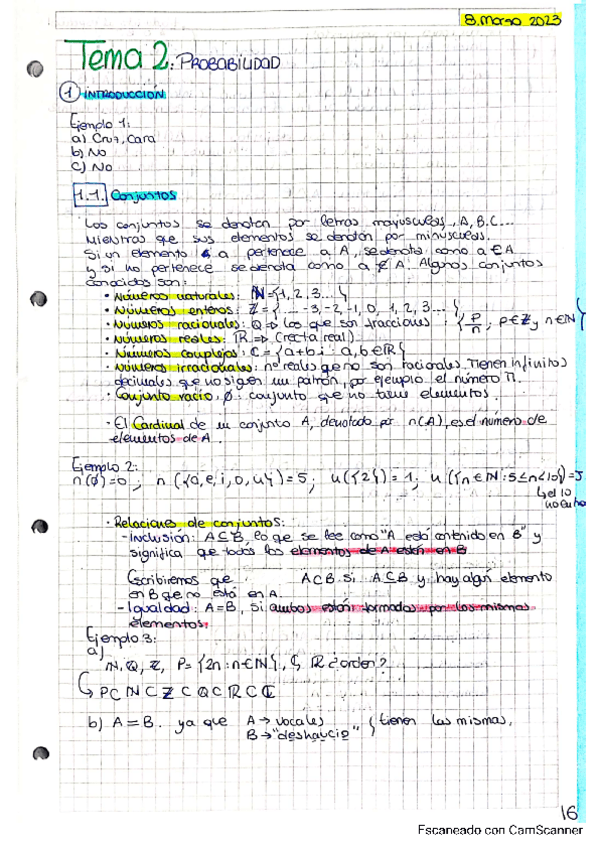 8. Marzo 2023
Tema 2: PROBABILIDAD
1 INTRODUCCIÓN
Ejemplo 1:
a) Cruz, Cara
b) No
c) No
1.1. Conjuntos
Los conjuntos se denotan por letras mayúsculas, A, B, C...
Mientras que sus elementos se denotan por minúsculas.
Si un elemento a pertenece a A, se denota como a ∈ A
y si no pertenece se denota como a ∉ A. Algunos conjuntos
conocidos son:
· Números naturales: ℕ={1, 2, 3...}
· Números enteros: ℤ={... -3, -2, -1, 0, 1, 2, 3...}
· Números racionales: Q => los que son fracciones: {p/n, p∈ℤ y n∈ℕ}
· Números reales: ℝ => (recta real).
· Números complejos: C = {a+bi : a,b∈ℝ}
· Números irracionales: nº reales que no son racionales. Tienen infinitos
decimales que no siguen un patrón, por ejemplo el número π.
· Conjunto vacío, ∅: conjunto que no tiene elementos.
· El Cardinal de un conjunto A, denotado por n(A), es el número de
elementos de A.
Ejemplo 2:
n(∅)=0; n({a,e,i,o,u})=5; n({2})=1; n({n∈ℕ: 5≤n<10})=5
↳ el 10
no entra
· Relaciones de conjuntos:
- Inclusión: A⊆B, lo que se lee como "A está contenido en B" y
significa que todos los elementos de A están en B
Escribiremos que A⊂B si A⊆B y hay algún elemento
en B que no está en A.
- Igualdad: A=B, si ambos están formados por los mismos
elementos.
Ejemplo 3:
a)
ℕ, Q, ℤ, P={2n : n∈ℕ}, ℂ, ℝ ¿orden?
↳ P⊂ℕ⊂ℤ⊂Q⊂ℝ⊂ℂ
b) A=B. ya que A→ vocales } tienen las mismas.
B→ "deshaucio"
16
Escaneado con CamScanner